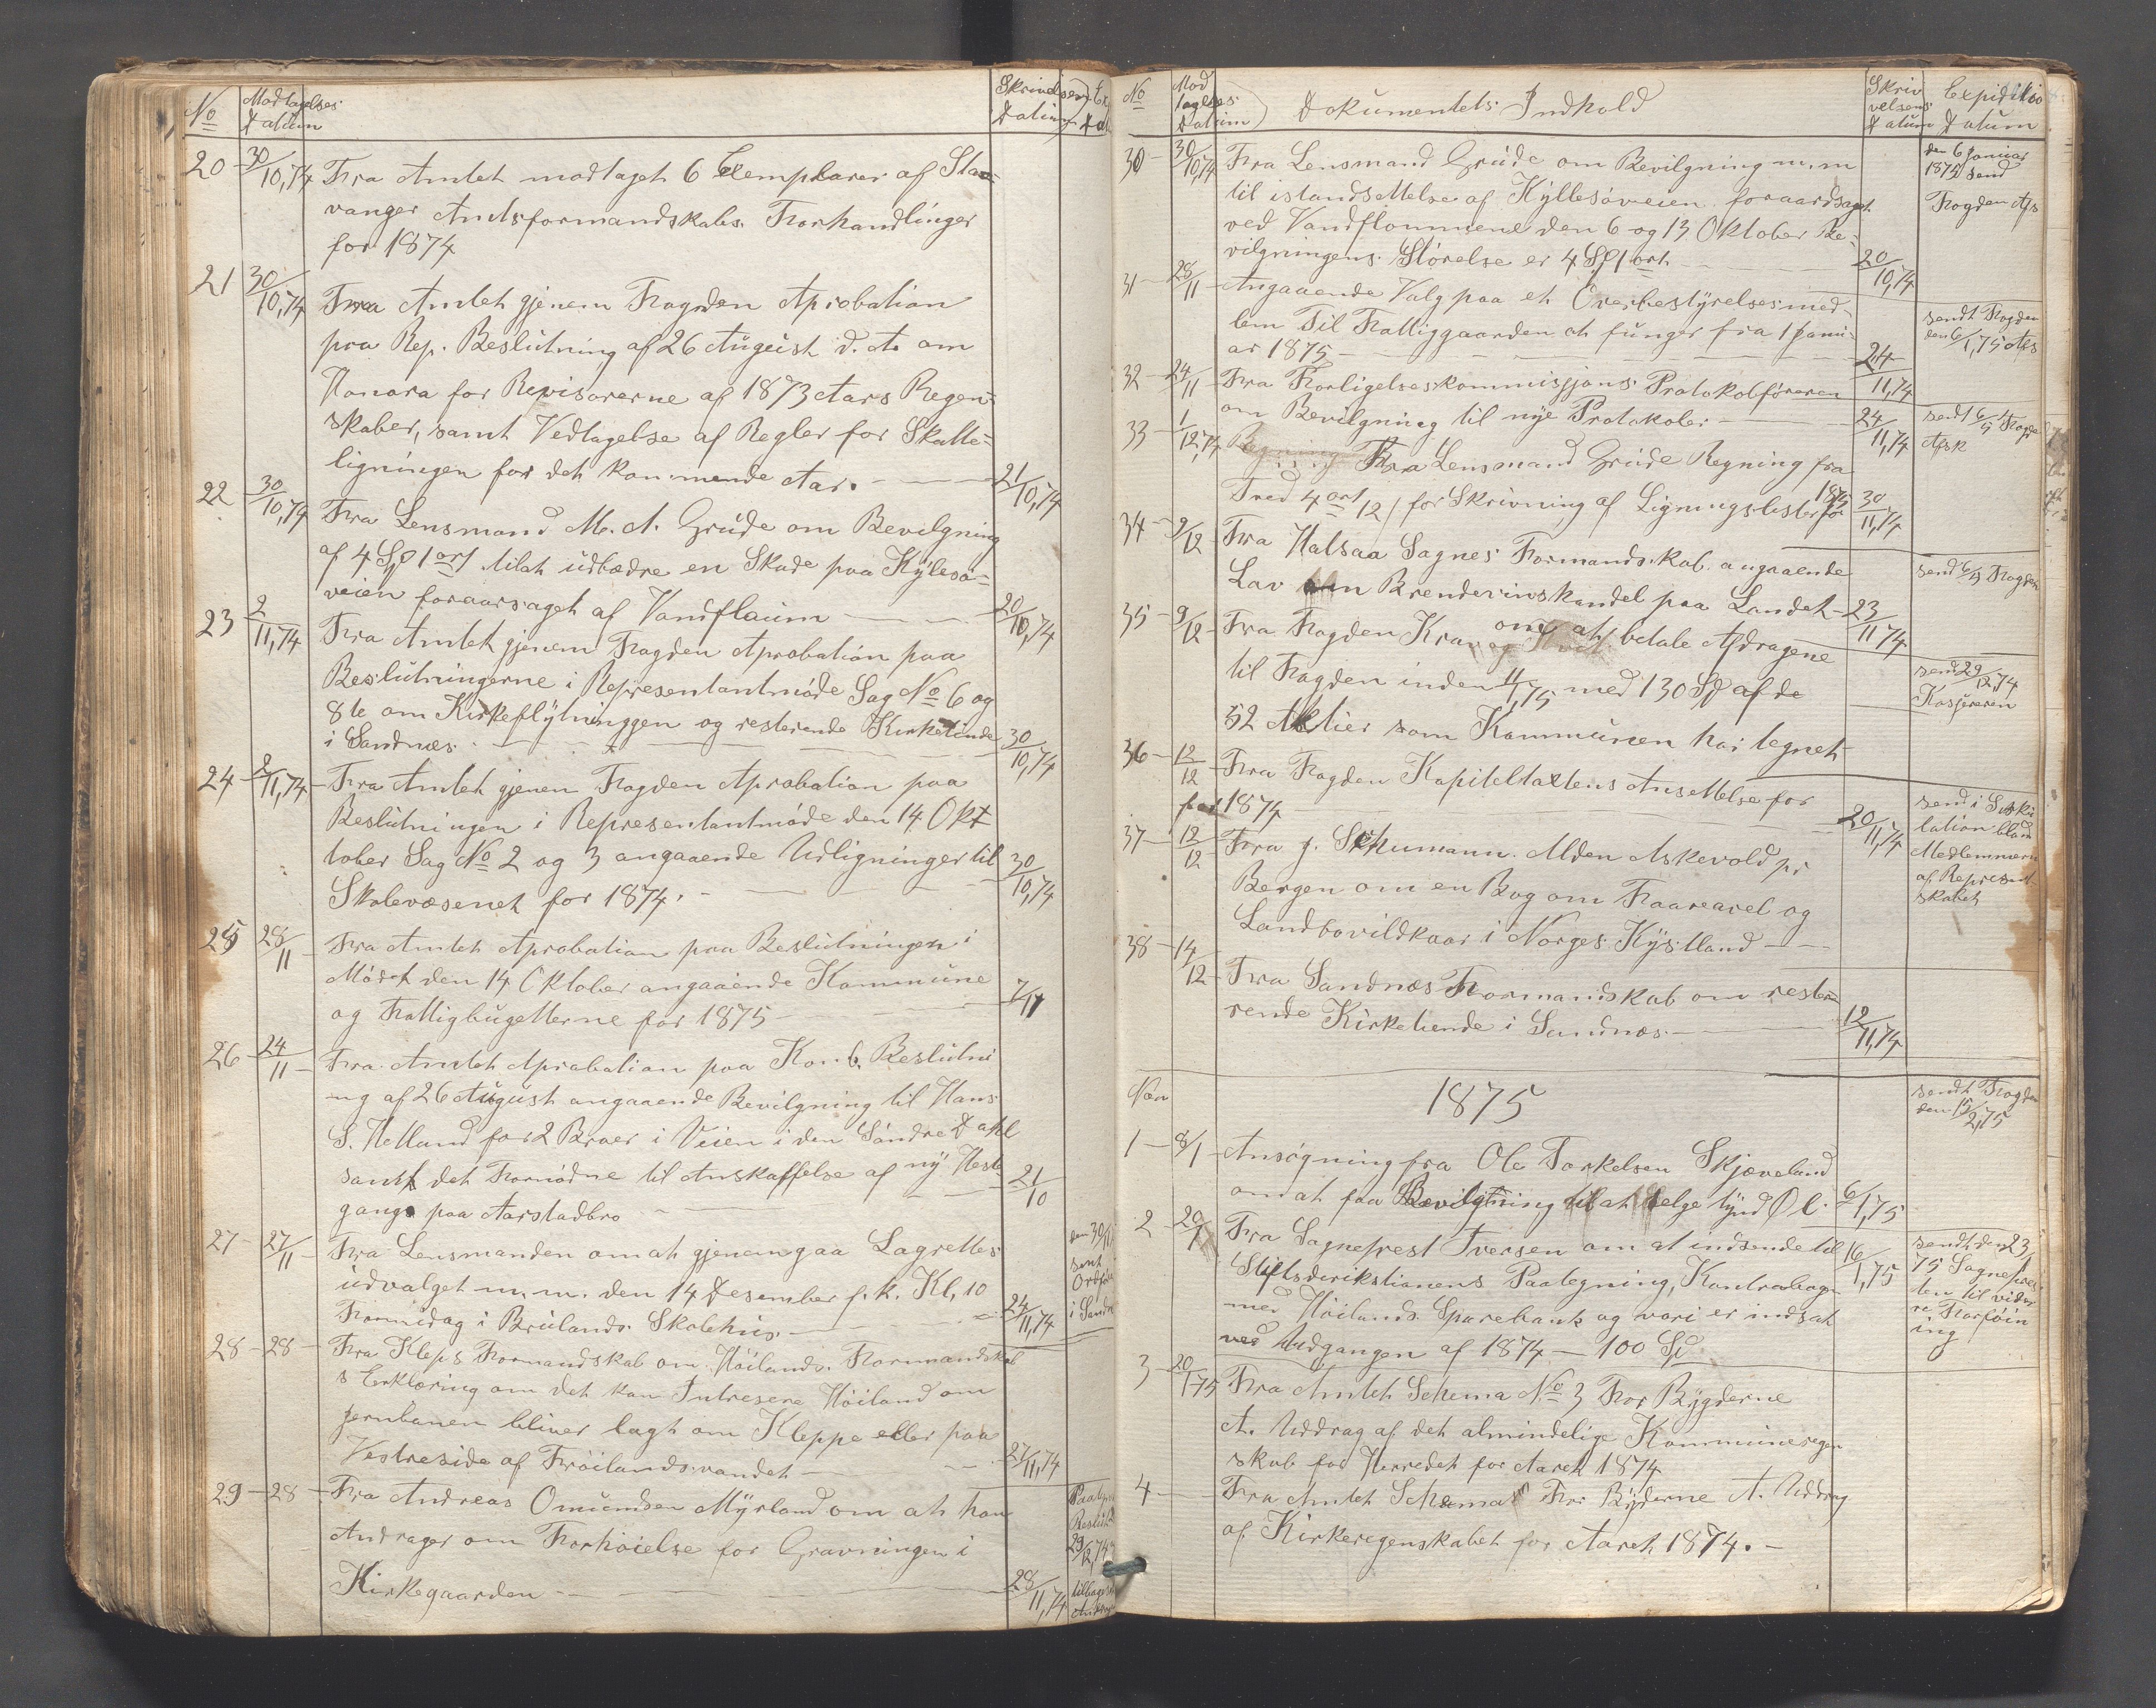 No Modtagelses Datum Skrivelsens Datum
20 30/10,74 Fra Amtet modtaget 6 Exemplarer af Sta=
vanger Amtsformandskabs Forhandlinger
for 1874
21 30/10,74 Fra Amtet gjenem Fogden Aprobation
paa Rep. Beslutning af 26 August d. A. om
Honora for Revisorerne af 1873 Aars Regen=
skaber, samt Vedtagelse af Regler for Skatte=
ligningen for det kommende Aar. 21/10,74
22 30/10,74 Fra Lensmand M. A. Grude om Bevilgning
af 4 Sp 1 ort tilat udbædre en Skade paa Kylesø=
veien foraarsaget af Vandflaum 20/10,74
23 2/11,74 Fra Amtet gjenem Fogden Aprobation paa
Beslutningerne i Representantmøde Sag No 6 og
8te om Kirkeflytninggen og resterende Kirketiende
i Sandnæs 30/10,74
24 2/11,74 Fra Amtet gjenem Fogden Aprobation paa
Beslutningen i Representantmøde den 14 Okt
tober Sag No 2 og 3 angaaende Udligninger til
Skolevæsenet for 1874. 30/10,74
25 28/11 Fra Amtet Aprobation paa Beslutningen i
Mødet den 14 Oktober angaaende Kommune
og Fattigbugetterne for 1875 7/11
26 24/11 Fra Amtet Aprobation paa Komb. Beslutni
ng af 26 August angaaende Bevilgning til Hans
S. Helland for 2 Broer i Veien i den Søndre Dahl
samt det Fornødne til Anskaffelse af ny Heste
gange paa Aarstadbro 21/10
27 27/11 Fra Lensmanden om at gjenemgaa Lagrettes
udvalget m. m. den 14 Desember f. k. Kl, 10
Formidag i Brulands Skolehus 24/11,74
28 28 Fra Kleps Formandskab om Høilands Formandskab
s Erklæring om det kan Intresere Høiland om
Jernbanen bliver lagt om Kleppe eller paa
Vestreside af Frøilandsvandet 27/11,74
29 28 Fra Andreas Omundsen Myrland om at han
Andrager om Forhøielse for Gravningen i
Kirkegaarden 28/11,74
No Modtagelses Datum Dokumentets Indhold Skrivelsens Datum Expeditio Datum
30 30/10,74 Fra Lensmand Grude om Bevilgning m. m
til istandsettelse af Kyllesøveien foraardsaget
ved Vandflommene den 6 og 13 Oktober Be=
vilgningens Störelse er 4 Sp 1 ort 20/10,74
den 6 Januar
1875 send
Fogden Afs
31 28/11 Angaaende Valg paa et Overbestyrelsesmed=
lem Til Fattiggaarden at funger fra 1 Janu=
ar 1875 24/11,74
sendt Fogden
den 6/1,75 Afs
32 24/11 Fra Forligelseskommissjons Protokolføreren
om Bevilgning til nye Protokoler 24/11,74
sendt 6/1 Fogde
Afsk
33 1/12,74 Regning Fra Lensmand Grude Regning fra
Tred 4 ort 12/ for Skrivning af Ligningslister for 1875 30/11,74
34 9/12 Fra Halsaa Sagnes Formandskab angaaende
Lov om Brendevinshandel paa Landet 23/11 74
send 6/1 Fogden
35 9/12 Fra Fogden Krav om at betale Afdragene
til Fogden inden 11/1,75 med 130 Sp af de
52 Aktier som Kommunen har tegnet
send 29/12,74
Kasjereren
36 12/12 Fra Fogden Kapiteltaxtens Ansettelse for
for 1874 20/11,74
send i Sirku
lation blan
Medlemmern
af Represent
skabet
37 12/12 Fra J. Schumann Alden Askevold pr
Bergen om en Bog om Faareavel og
Landbovildkaar i Norges Kystland
38 14/12 Fra Sandnæs Formandskab om reste=
rende Kirketiende i Sandnæs 12/11,74
1875
sendt Fogden
den 15/2,75
1 8/1 Ansøgning fra Ole Torkelsen Skjæveland
om at faa Bevilgtning til at selge tynd Øl. 6/1,75
2 20/1 Fra Sagneprest Iversen om at indsende til
Stiftsderikstionens Paategning, Kontrabogen
med Høilands Sparebank og vori er indsat
ved Udgangen af 1874 — 100 Sp 16/1,75
sendt den 23/1
75 Sagnepres
ten til vider
re Forføin
ing
3 20/1 75 Fra Amtet Schema No 3 For Bygderne
A. Uddrag af det almindelige Kommuneregen
skab for Herredet for Aaret 1874
4 Fra Amtet Schema For Byderne A. Uddrag
af Kirkeregenskabet for Aaret 1874.